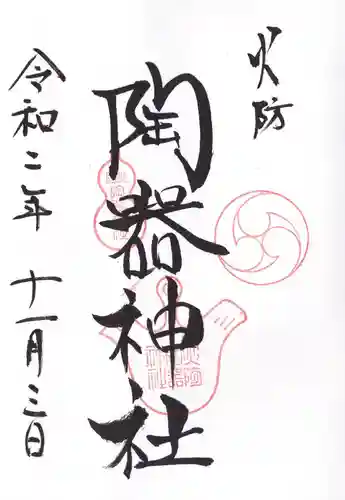 火防
陶器神社
令和二年 十一月三日